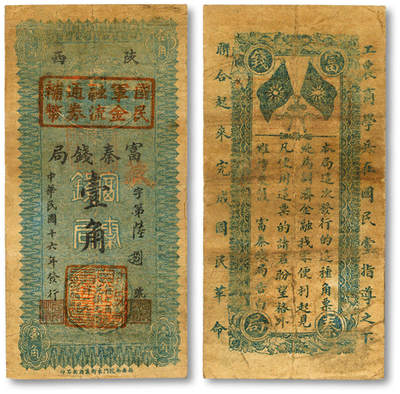 陕西
國民軍金融流通券補幣
富秦錢局
壹角
字第陸 號
中華民國十六年發行
壹角
工農商學兵在國民黨指導之下
聯合起來完成國民革命
富秦錢局
本局這次發行的這種角票
為調濟金融找零便利起見
凡使用這票的諸君盼望格外
富秦錢局告白